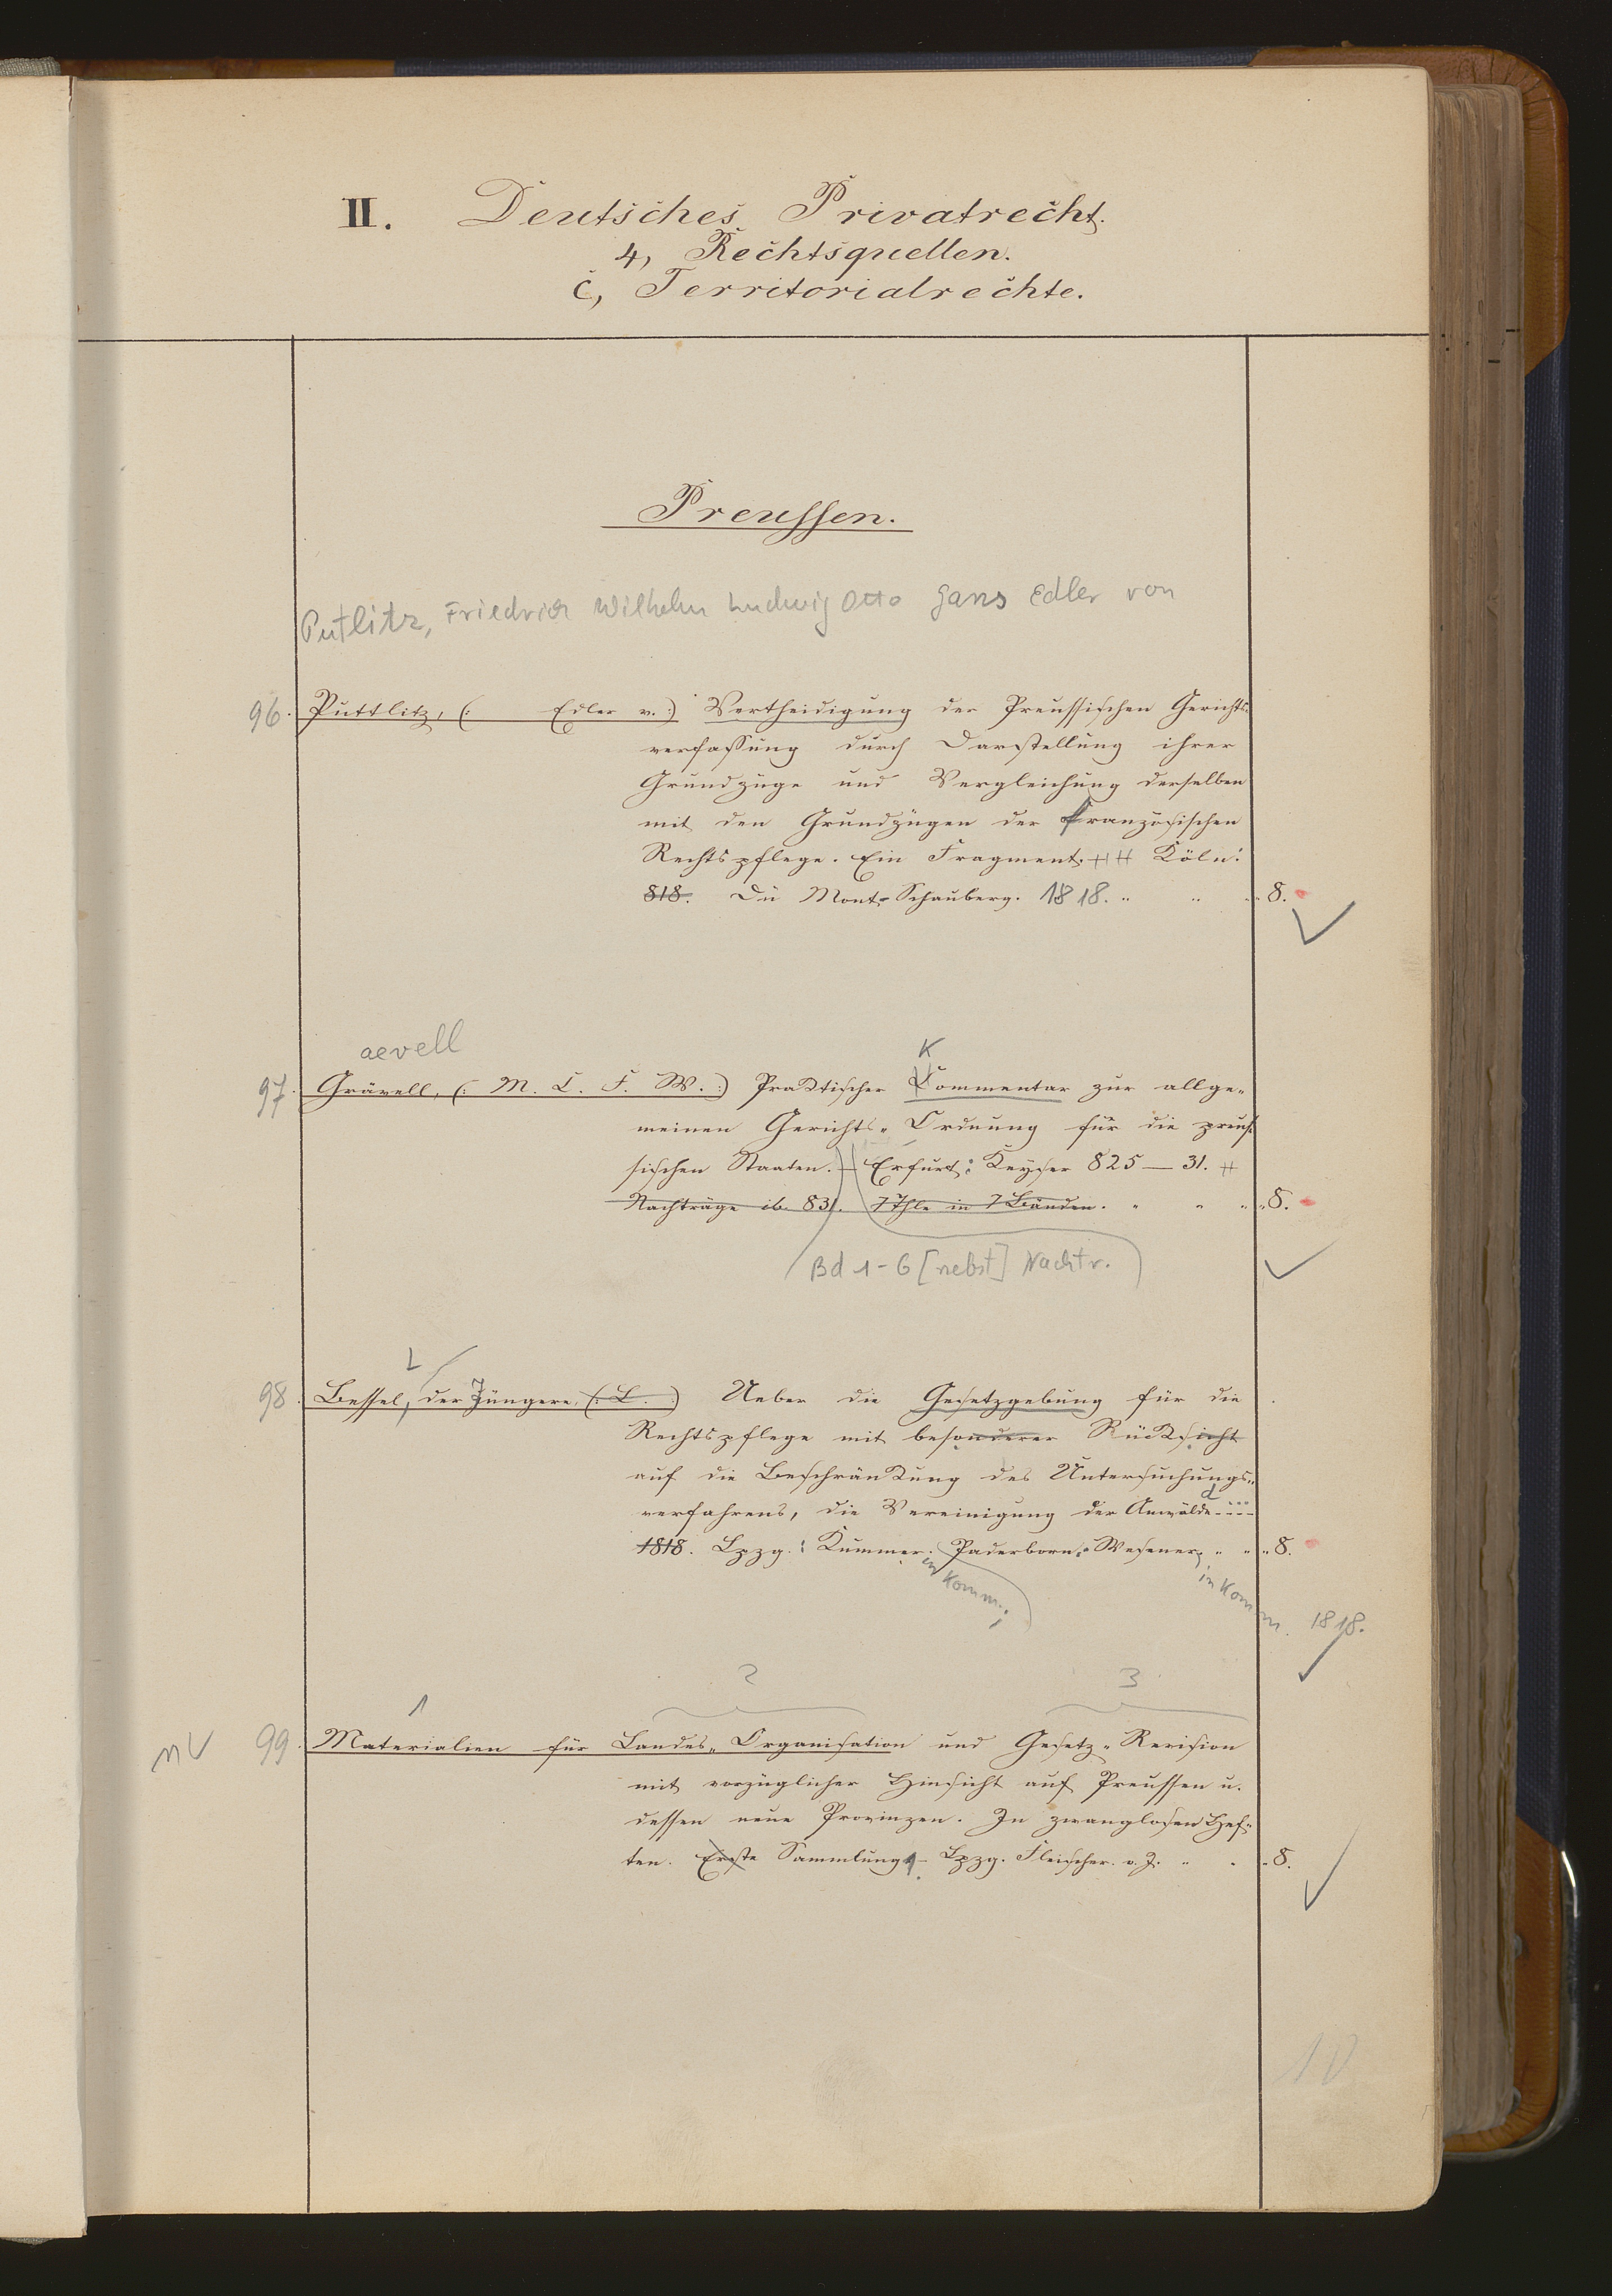 II. Deutsches Privatrecht.
4, Rechtsquellen.
c, Territorialrechte.
Preussen.
Putlitz, Friedrich Wilhelm Ludwig Otto Gans Edler von
96. Puttlitz, (: Edler v. :) Vertheidigung der Preussischen Gerichts-
verfassung durch Darstellung ihrer
Grundzüge und Vergleichung derselben
mit den Grundzügen der französischen
Rechtspflege. Ein Fragment. Köln:
818. Du Mont-Schauberg. 1818. " " " 8.
aevell
K
97. Grävell, (: M. C. F. W. :) Praktischer Commentar zur allge-
meinen Gerichts-Ordnung für die preus-
sischen Staaten. – Erfurt: Keyser 825 – 31.
Nachträge ib. 831. 7 Thle in 7 Bänden. " " " 8.
Bd 1-6 [nebst] Nachtr.
L
98. Bessel, der Jüngere, (: L. :) Ueber die Gesetzgebung für die
Rechtspflege mit besonderer Rücksicht
auf die Beschränkung des Untersuchungs-
verfahrens, die Vereinigung der Anwälde ....
1818. Lpzg.: Kummer. Paderborn: Wesener, " " " 8.
in Komm.; in Komm. 1818.
1 2 3
99. Materialien für Landes-Organisation und Gesetz-Revision
mit vorzüglicher Hinsicht auf Preussen u.
dessen neue Provinzen. In zwanglosen Hef-
ten. Erste Sammlung 1. – Lpzg. Fleischer. o. J. " " " 8.
10